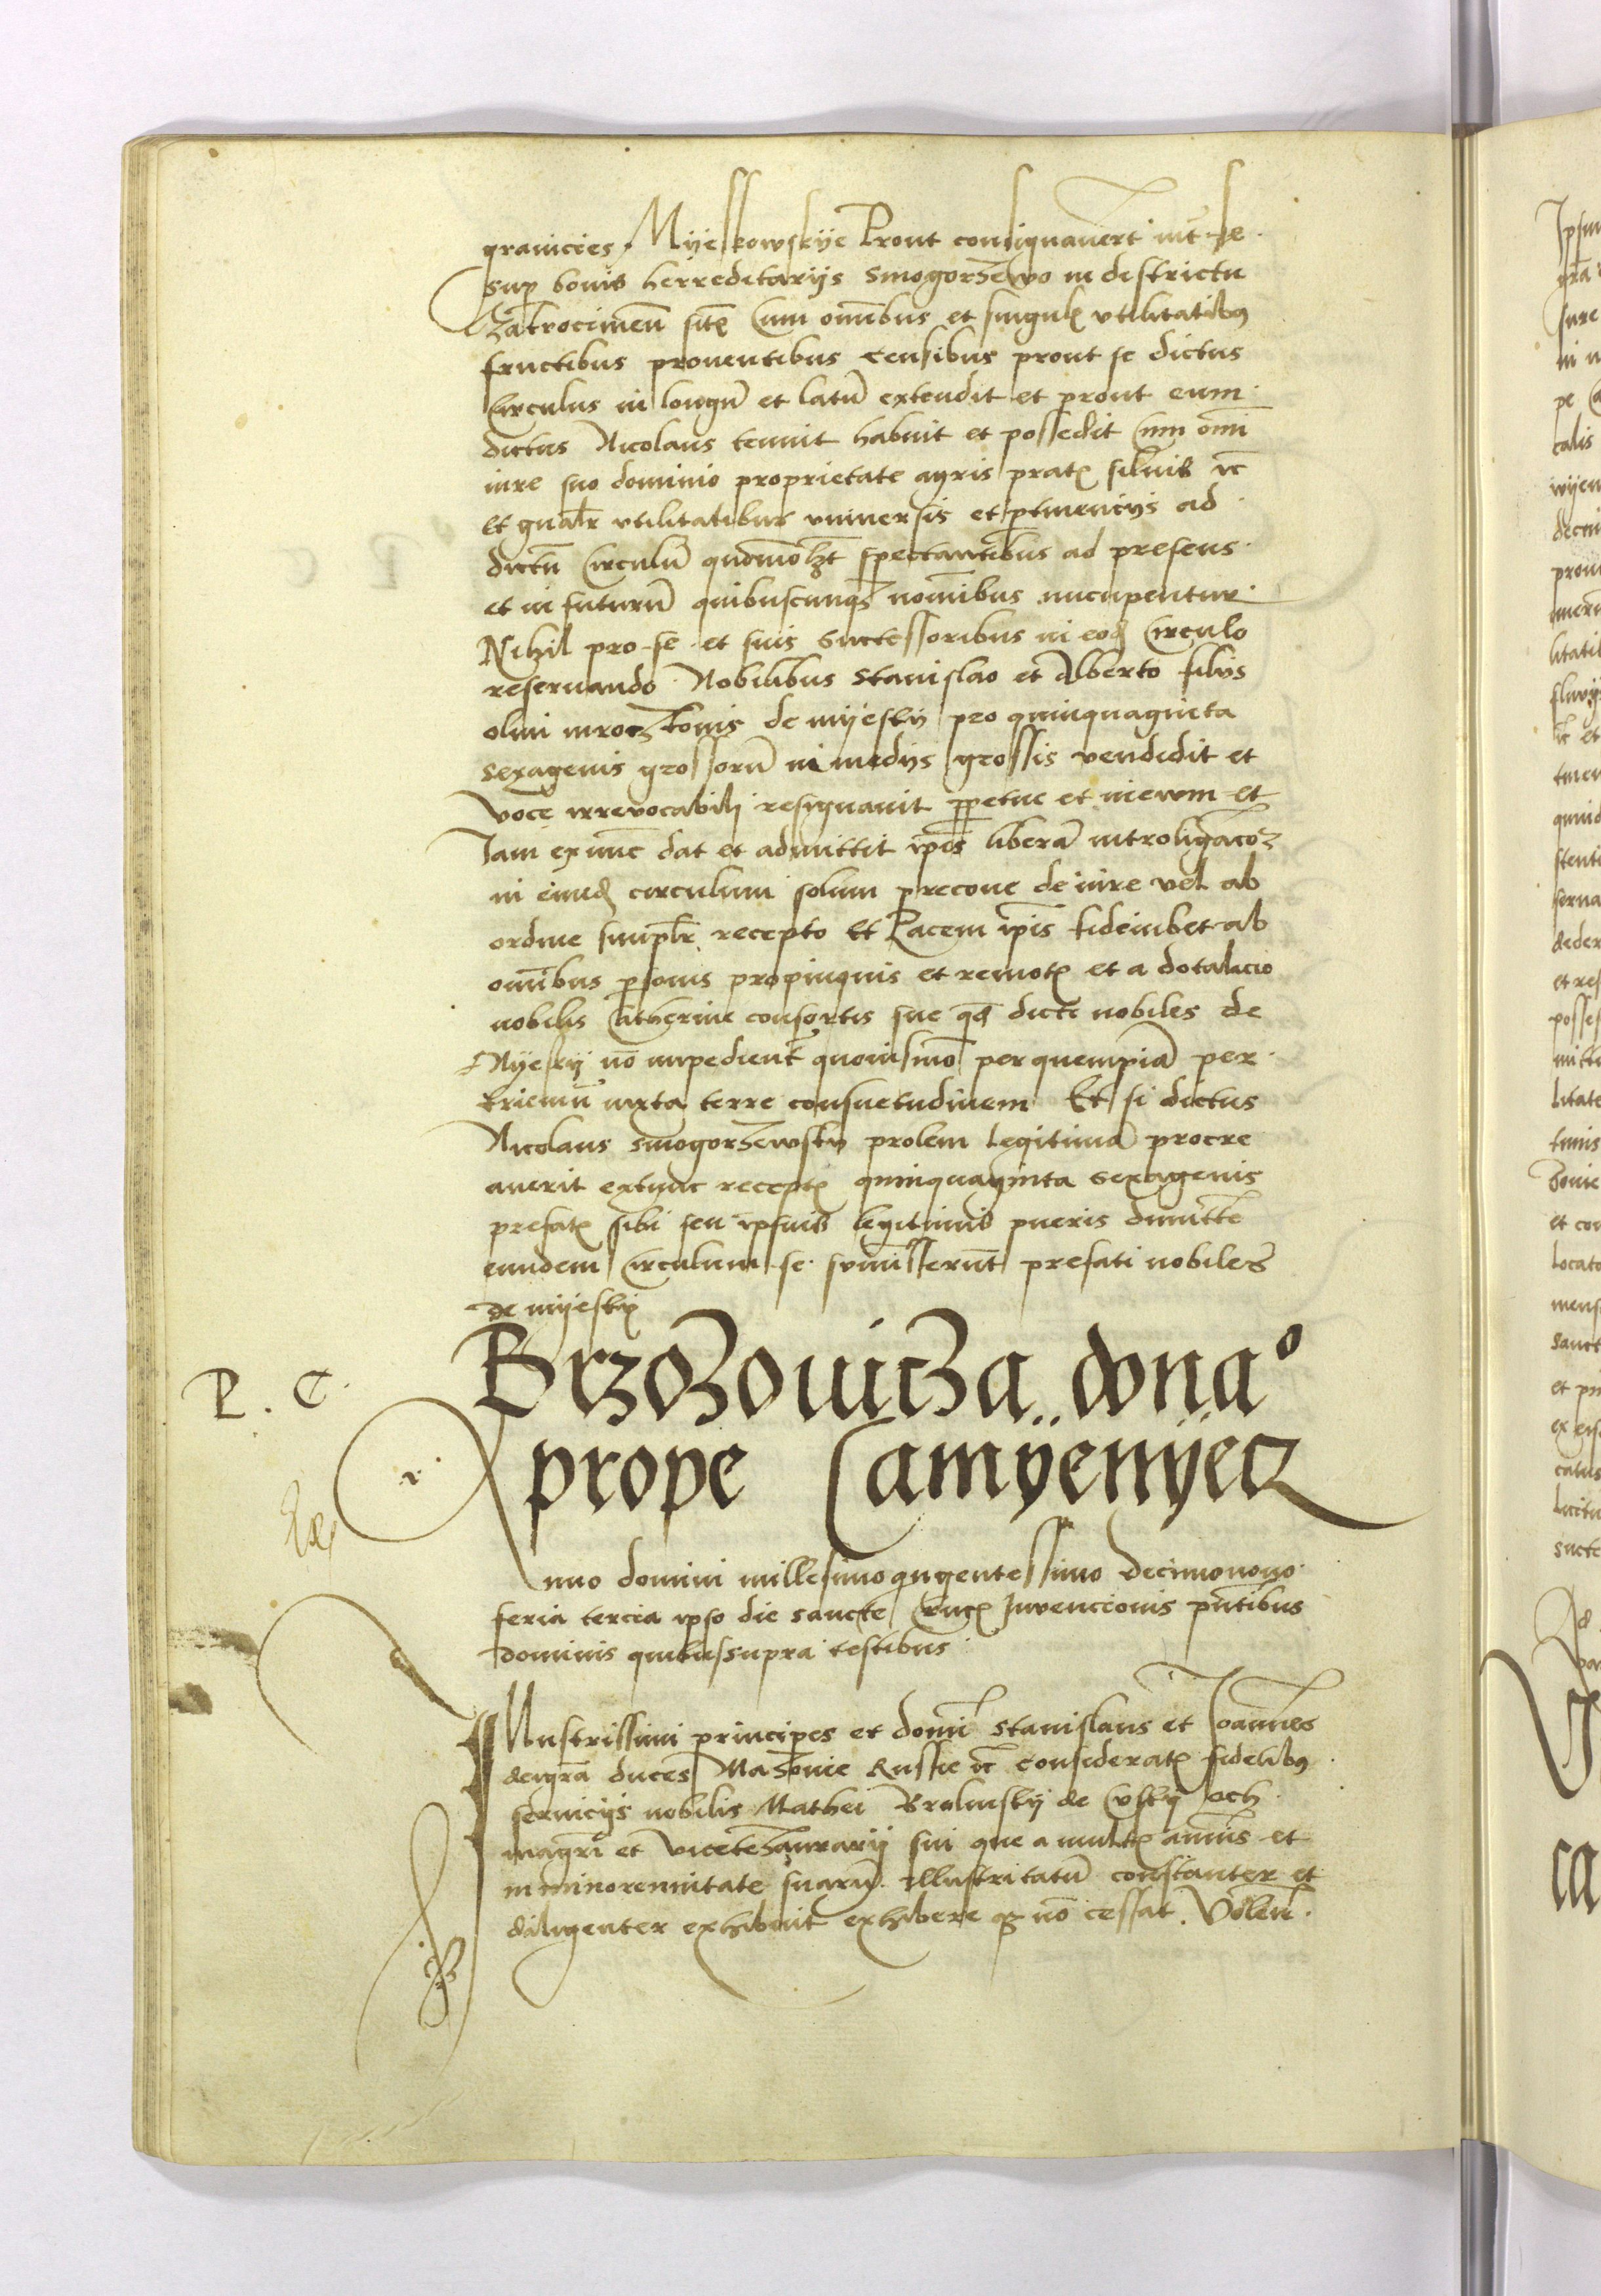 granicies Myeskowskye Prout consignauert int se
sup bonis herreditarijs Smogorzewo in destrictu
Zakrocimen sitē Cum omibus et singulꝭ vtilitatibꝰ
fructibus prouentibus censibus prout se dictus
Circulus in longū et latū extendit et prout eum
dictus Nicolaus tenuit habuit et possedit Cum omi
iure suo dominio proprietate agris pratꝭ siluis ꝛc̄
et gnalr vtilitatibus vniuersis et ptinencijs ad
dictū Circulū quomolȝt spectantibus ad presens
et in futurū quibuscunqȝ nomibus nucupentur
Nihil pro se et suis successoribus in eod Circulo
reseruando Nobilibus Stanislao et Alberto filijs
olim mroczkonis de myesky pro quinquaginta
sexagenis grossorū in medijs grossis vendidit et
voce irreuocabili resignauit ꝑpetue et in ewm et
Iam ex nūc dat et admittit ipos liberā introligacoȝ
in eiud circulum solum precone de iure vel ab
ordine simplr recepto Et Pacem ipis fideiubet ab
omibus psonis propinquis et remotꝭ et a dotalicio
nobilis Catherine consortis sue qd dicti nobiles de
Myesky nō impedient quouismō per quempiā per
trienniū iuxta terre consuetudinem Et si dictus
Nicolaus Smogorzewsky prolem legitimā procre
auerit extunc receptꝭ quinquaginta sexagenis
prefatꝭ sibi seu ipsius legitimis pueris dimitte
eundem Circulum se sumisserunt prefati nobiles
de myesky
Brzozowicza dona°
P. C.
prope Camyenyecz
nno domini millesimo qngentessimo decimonono
feria tercia ipso die sancte Crucꝭ Inuencionis pntibus
dominis quibussupra testibus
Illustrissimi principes et domi Stanislaus et Joannes
dei gra duces Mazouie Russie ꝛc̄ consideratꝭ fidelibꝰ
seruicijs nobilis Mathei Brolinsky de och
magri et vicetezaurarij sui que a multꝭ annis et
in minorennitate suarū illustritatū constanter et
diligenter exhibuit exhibere qȝ nō cessat Volen